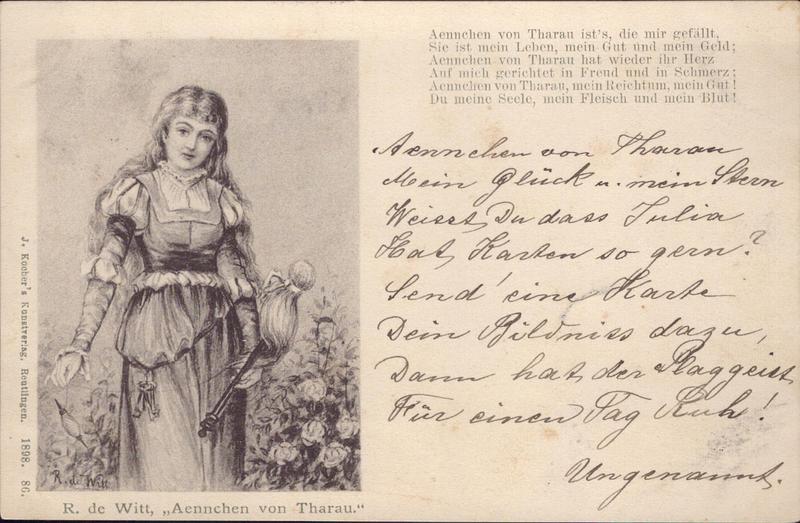 Aennchen von Tharau ist's, die mir gefällt,
Sie ist mein Leben, mein Gut und mein Geld;
Aennchen von Tharau hat wieder ihr Herz
Auf mich gerichtet in Freud und in Schmerz;
Aennchen von Tharau, mein Reichtum, mein Gut!
Du meine Seele, mein Fleisch und mein Blut!
Aennchen von Tharau
Mein Glück u. mein Stern
Weisst Du dass Julia
Hat Karten so gern?
Send' eine Karte
Dein Bildniss dazu,
Dann hat der Plaggeist
Für einen Tag Ruh!
Ungenannt.
J. Koober's Kunstverlag, Reutlingen. 1898. 86.
R. de Witt
R. de Witt, „Aennchen von Tharau."